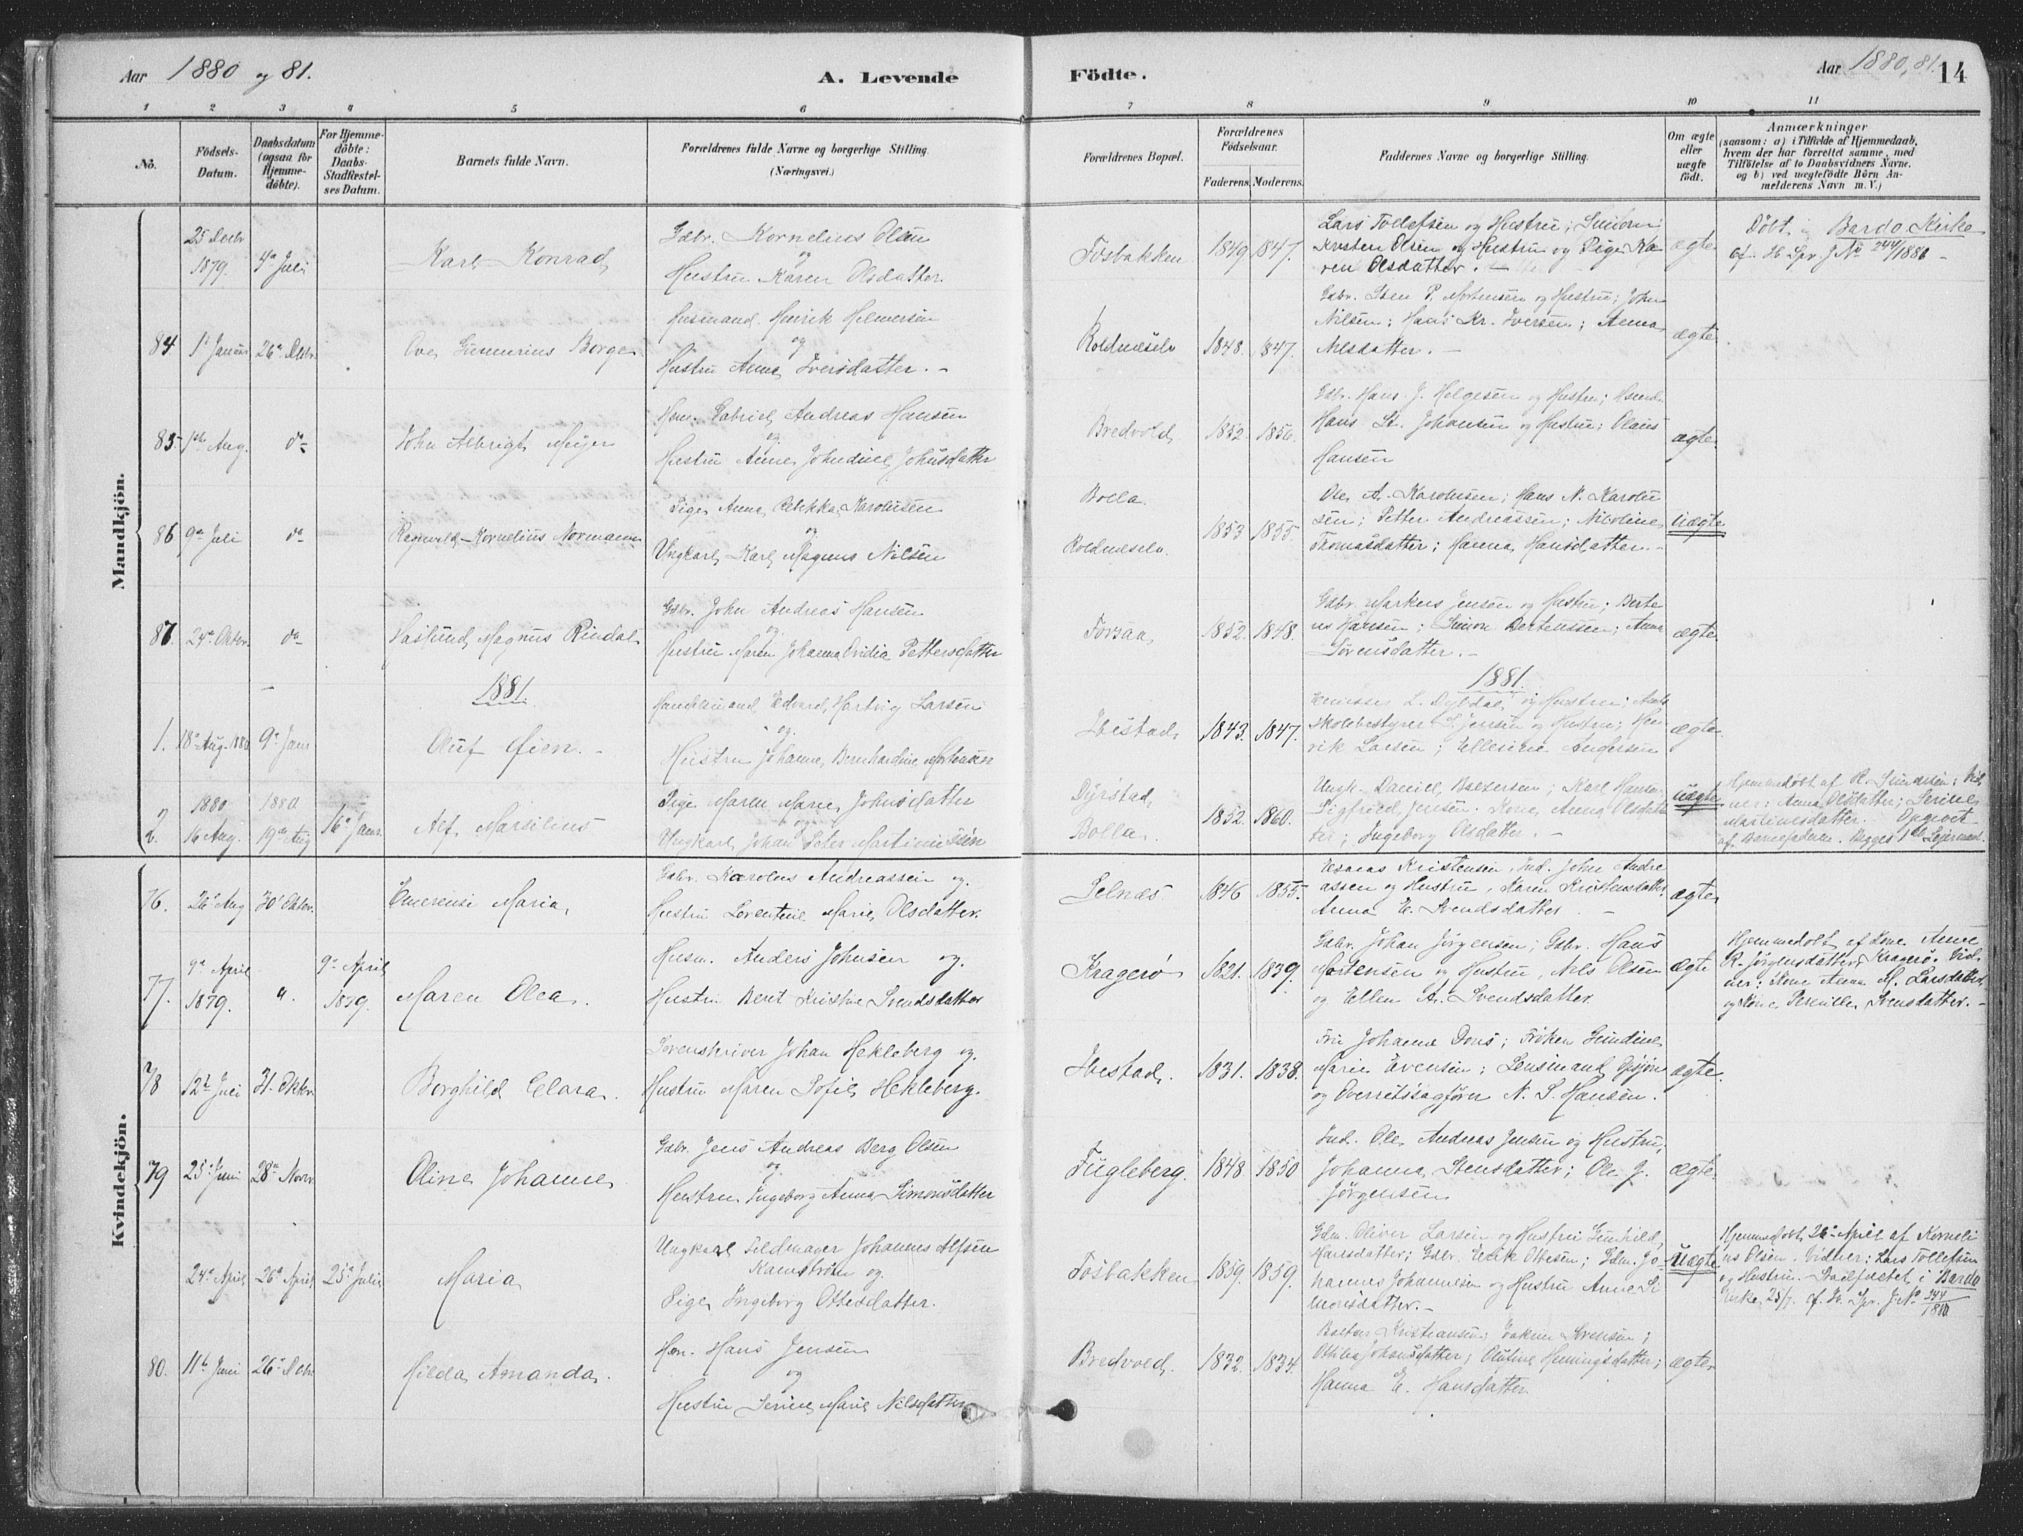 Aar 1880 og 81.
A. Levende
Födte.
Aar 1880, 81.
14
1 2 3 4 5 6 7 8 9 10 11
No.
Födsels-Datum.
Daabsdatum (ogsaa for Hjemme-döbte).
For Hjemme-döbte: Daabs-Stadfæstel-ses Datum.
Barnets fulde Navn.
Forældrenes fulde Navne og borgerlige Stilling. (Næringsvei.)
Forældrenes Bopæl.
Forældrenes Födselsaar.
Faderens. Moderens.
Faddernes Navne og borgerlige Stilling.
Om ægte eller uægte født.
Anmærkninger
(saasom: a) i Tilfælde af Hjemmedaab, hvem der har forrettet samme, med Tilföielse af to Daabsvidners Navne. og b) ved uægtefödte Börn An-melderens Navn m. V.)
Mandkjön.
25 Decbr 1879. 4de Juli
Karl Konrad
Gdbr. Kornelius Olsen
og
Hustru Karen Olsdatter
Fosbakken 1849 1847.
Lars Tollefsen og Hustru;
Kristen Olsen og Hustru og Pige Ka-
ren Olsdatter. —
ægte
Döbt i Bardo Kirke
cf. H. Spr. J No 244/1880 —
84 26de Decbr.
Ove Gunnerius Borge
Husmand Henrik Helmersen
og
Hustru Anna Iversdatter. —
Roldnæselv 1848. 1847.
Gdbr. Sten P. Mortensen og Hustru; John
Nilsen; Hans Kr. Iversen; Anna
Nilsdatter. —
ægte
85 Aug. do
John Albrigt Meyer
Hm. Gabriel Andreas Hansen
og
Hustru Anne Johnsdatter
Bredvold 1852. 1856.
Gdbr. Hans J. Helgesen og Hustru;
Hans St. Johansen og Hustru; Olaus
Hansen
ægte
86 9de Juli do
Ragnvald Kornelius Normann
Pige Anna Rebekka Karolusen
og
Ungkarl Karl Magnus Nilsen
Bolla
Roldnæselv 1853 1855.
Ole A. Karolusen; Hans N. Karolu
sen; Petter Andreassen; Nikoline
Thomasdatter; Hanna Hansdatter. —
uægte
87. 24de Oktbr. do
Haslund Magnus Rindal
Gdbr. John Andreas Hansen
og
Hustru Maren Johanna Ovidia Pettersdatter
Forsaa 1852. 1848.
Gdbr. Markus Jensen og Hustru; Berte
us Hansen; Simon Bertenssen; Anna
Sörensdatter. —
ægte
1881.
1881.
1. 18de Aug. 1880 9de Janr
Oluf Öien. —
Handelsmand Edvard Hartvig Larsen
og
Hustru Johanna Bernhardine Mortensen
Ibestad 1843. 1847.
L. Dyldal og Hustru;
Skolebestyrer S. Jensen og Hustru; Hen-
rik Larsen; Ellesine Andersen
ægte
2. 1880 16 Aug. 1880 19de Aug 16de Janr.
Alf Marsilius
Pige Maren Marie Johnsdatter
og
Ungkarl Johan Peter Martinussen
Dyrstad
Bolla 1852. 1860.
Ungk. Daniel Baltzersen; Karl Hansen
Sigfred Jensen. Kone Anna Olsdat-
ter; Ingeborg Olsdatter. —
uægte
Hjemmedöbt af R. Simonsen; Vid
ner: Anna Olsdatter; Serine
Martinusdatter. Opgivet
af Barnefaderen. Begges 1ste Leiermaal.
Kvindekjön.
76. 26de Aug 30de Oktbr.
Emerensi Maria
Gdbr. Karolus Andreassen og
Hustru Lorentine Marie Olsdatter.
Selnæs 1846 1855.
Esaias Kristensen, Ind. John Andre
assen og Hustru, Karen Kristensdatter,
Anna E. Svendsdatter —
ægte
77. 9de April 1879. " 9de April 1879.
Maren Olea.
Husm. Anders Johnsen og
Hustru Beret Kristine Svendsdatter
Kragerö 1821. 1839.
Gdbr. Johan Jörgensen; Gdbr. Hans
Mortensen og Hustru, Nils Olsen
og Ellen A. Svendsdatter
ægte
Hjemmedöbt af Kone Anne
R. Jörgensdatter, Kragerö. Vid
ner: Kone Anna M. Larsdatter
og Kone Pernille Svensdatter. —
78 12te Juli 31. Oktbr.
Borghild Clara.
Sorenskriver Johan Hekleberg og
Hustru Maren Sofie Hekleberg.
Ibestad. 1831. 1838.
Fru Johanna Dons; Fröken Gundine
Marie Evensen; Lensmand Gjön
og Overretssagförer N. S. Hansen.
ægte.
79 23de Juni 28de Novbr
Oline Johanne
Gdbr. Jens Andreas Berg Olsen
og
Hustru Ingeborg Anna Simonsdatter
Fugleberg. 1848 1850
Ind. Ole Andreas Jensen og Hustru;
Johanna Stensdatter; Ole J.
Jörgensen
ægte.
24de April 26de April 25de Julie
Maria
Ungkarl Feldmager Johannes Alfsen
Kamströen og
Pige Ingeborg Ottesdatter.
Fosbakken 1859. 1859.
Gdm. Oliver Larsen og Hustru Gunhild
Hansdatter; Gdbr. Erik Ottesen; Gdm. Jo-
hannes Johannesen og Hustru Anne Si
monsdatter. —
Uægte
Hjemmedöbt 26de April af Korneli
us Olsen. Vidner: Lars Tollefsen
og Hustru. Stadfæstet i Bardo
Kirke 25/7. cf. H. Spr. J. No 244/1880
80. 11te Juni 26de Decbr.
Hilda Amanda.
Hm. Hans Jensen
og
Hustru Serine Marie Nilsdatter
Bredvold. 1832. 1834.
Kristiansen; Sörensen;
Johansdatter; Olutine Hemingsdatter;
Hanna E. Hansdatter
ægte